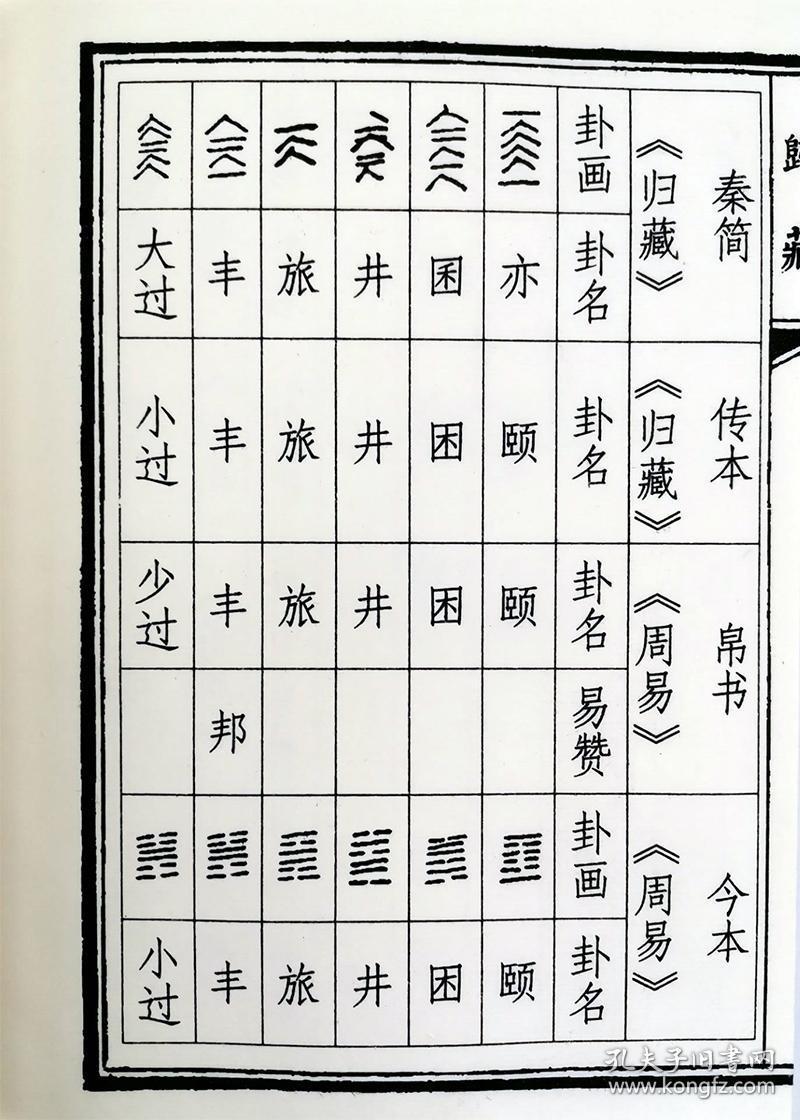 歸藏
秦简 传本 帛书 今本
《归藏》 《归藏》 《周易》 《周易》
卦画 卦名 卦名 卦名 易赞 卦画 卦名
亦 颐 颐 颐
囷 困 困 困
井 井 井 井
旅 旅 旅 旅
丰 丰 丰 邦 丰
大过 小过 少过 小过
孔夫子旧書网
www.kongfz.com